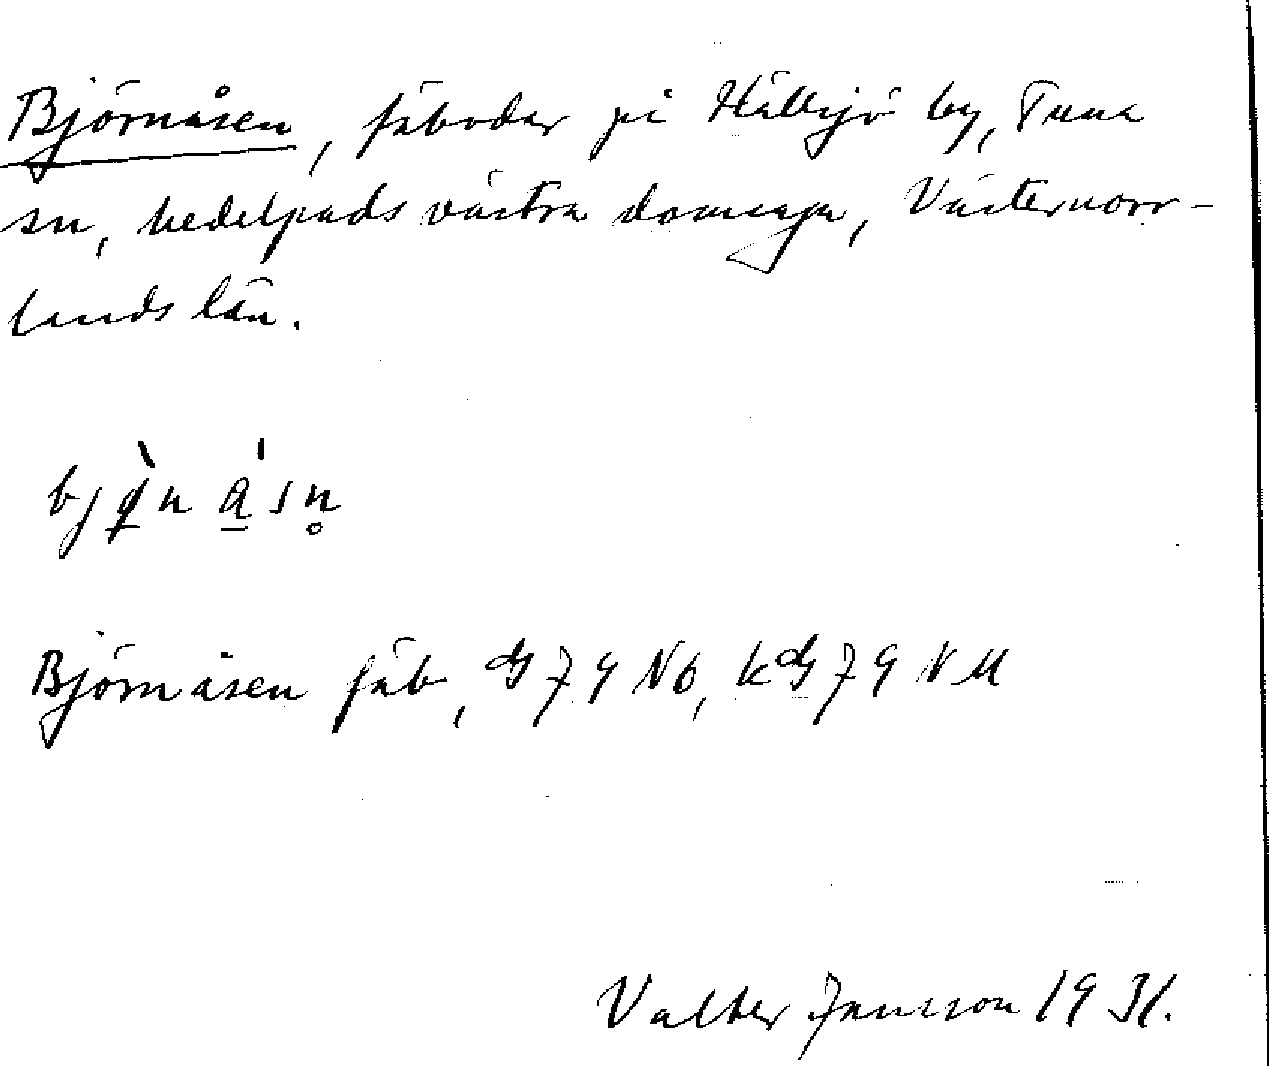 Björnåsen, fäbodar på Hällsjö by, Tuna
sn, Medelpads västra domsaga, Västernorr-
lands län.
Björnåsen fäb, 79 Nb, 79 NM
Valter Jansson 1931.